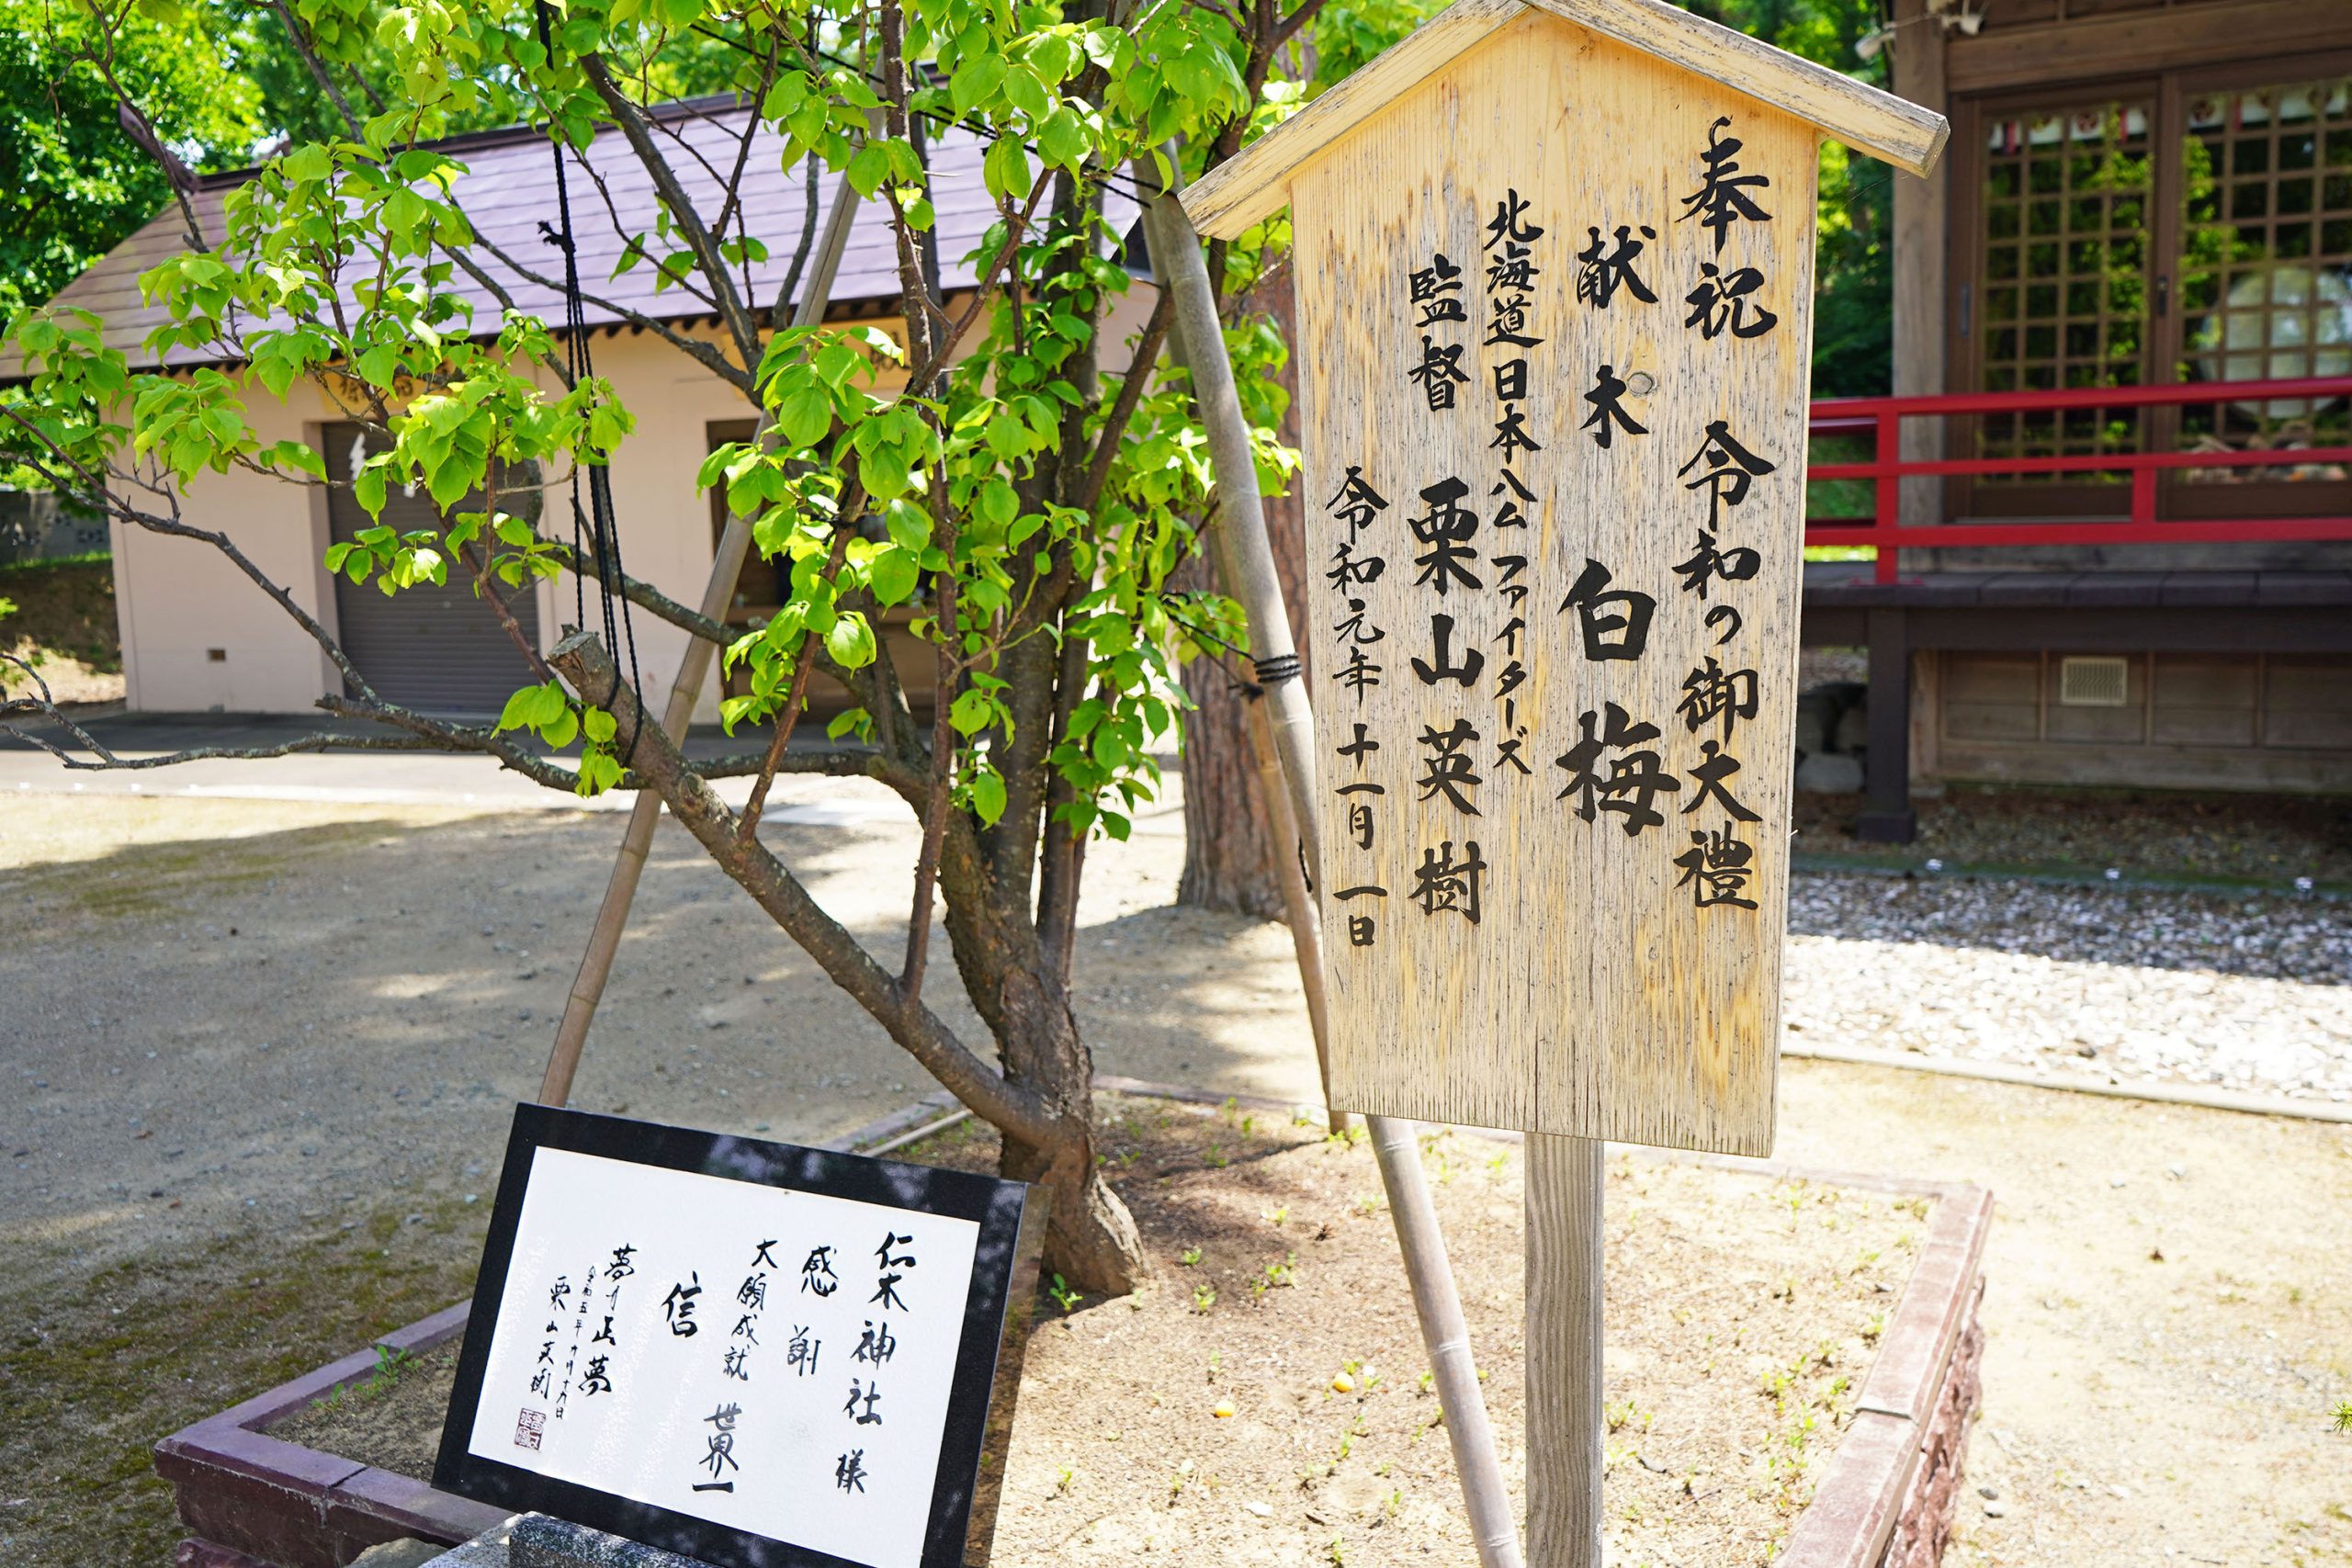 奉祝 令和の御大禮
献木 白梅
北海道日本ハムファイターズ
監督 栗山英樹
令和元年 十一月 一日
仁木神社 様
感謝
大願成就 世界一
信
夢は正夢
令和五年
栗山英樹